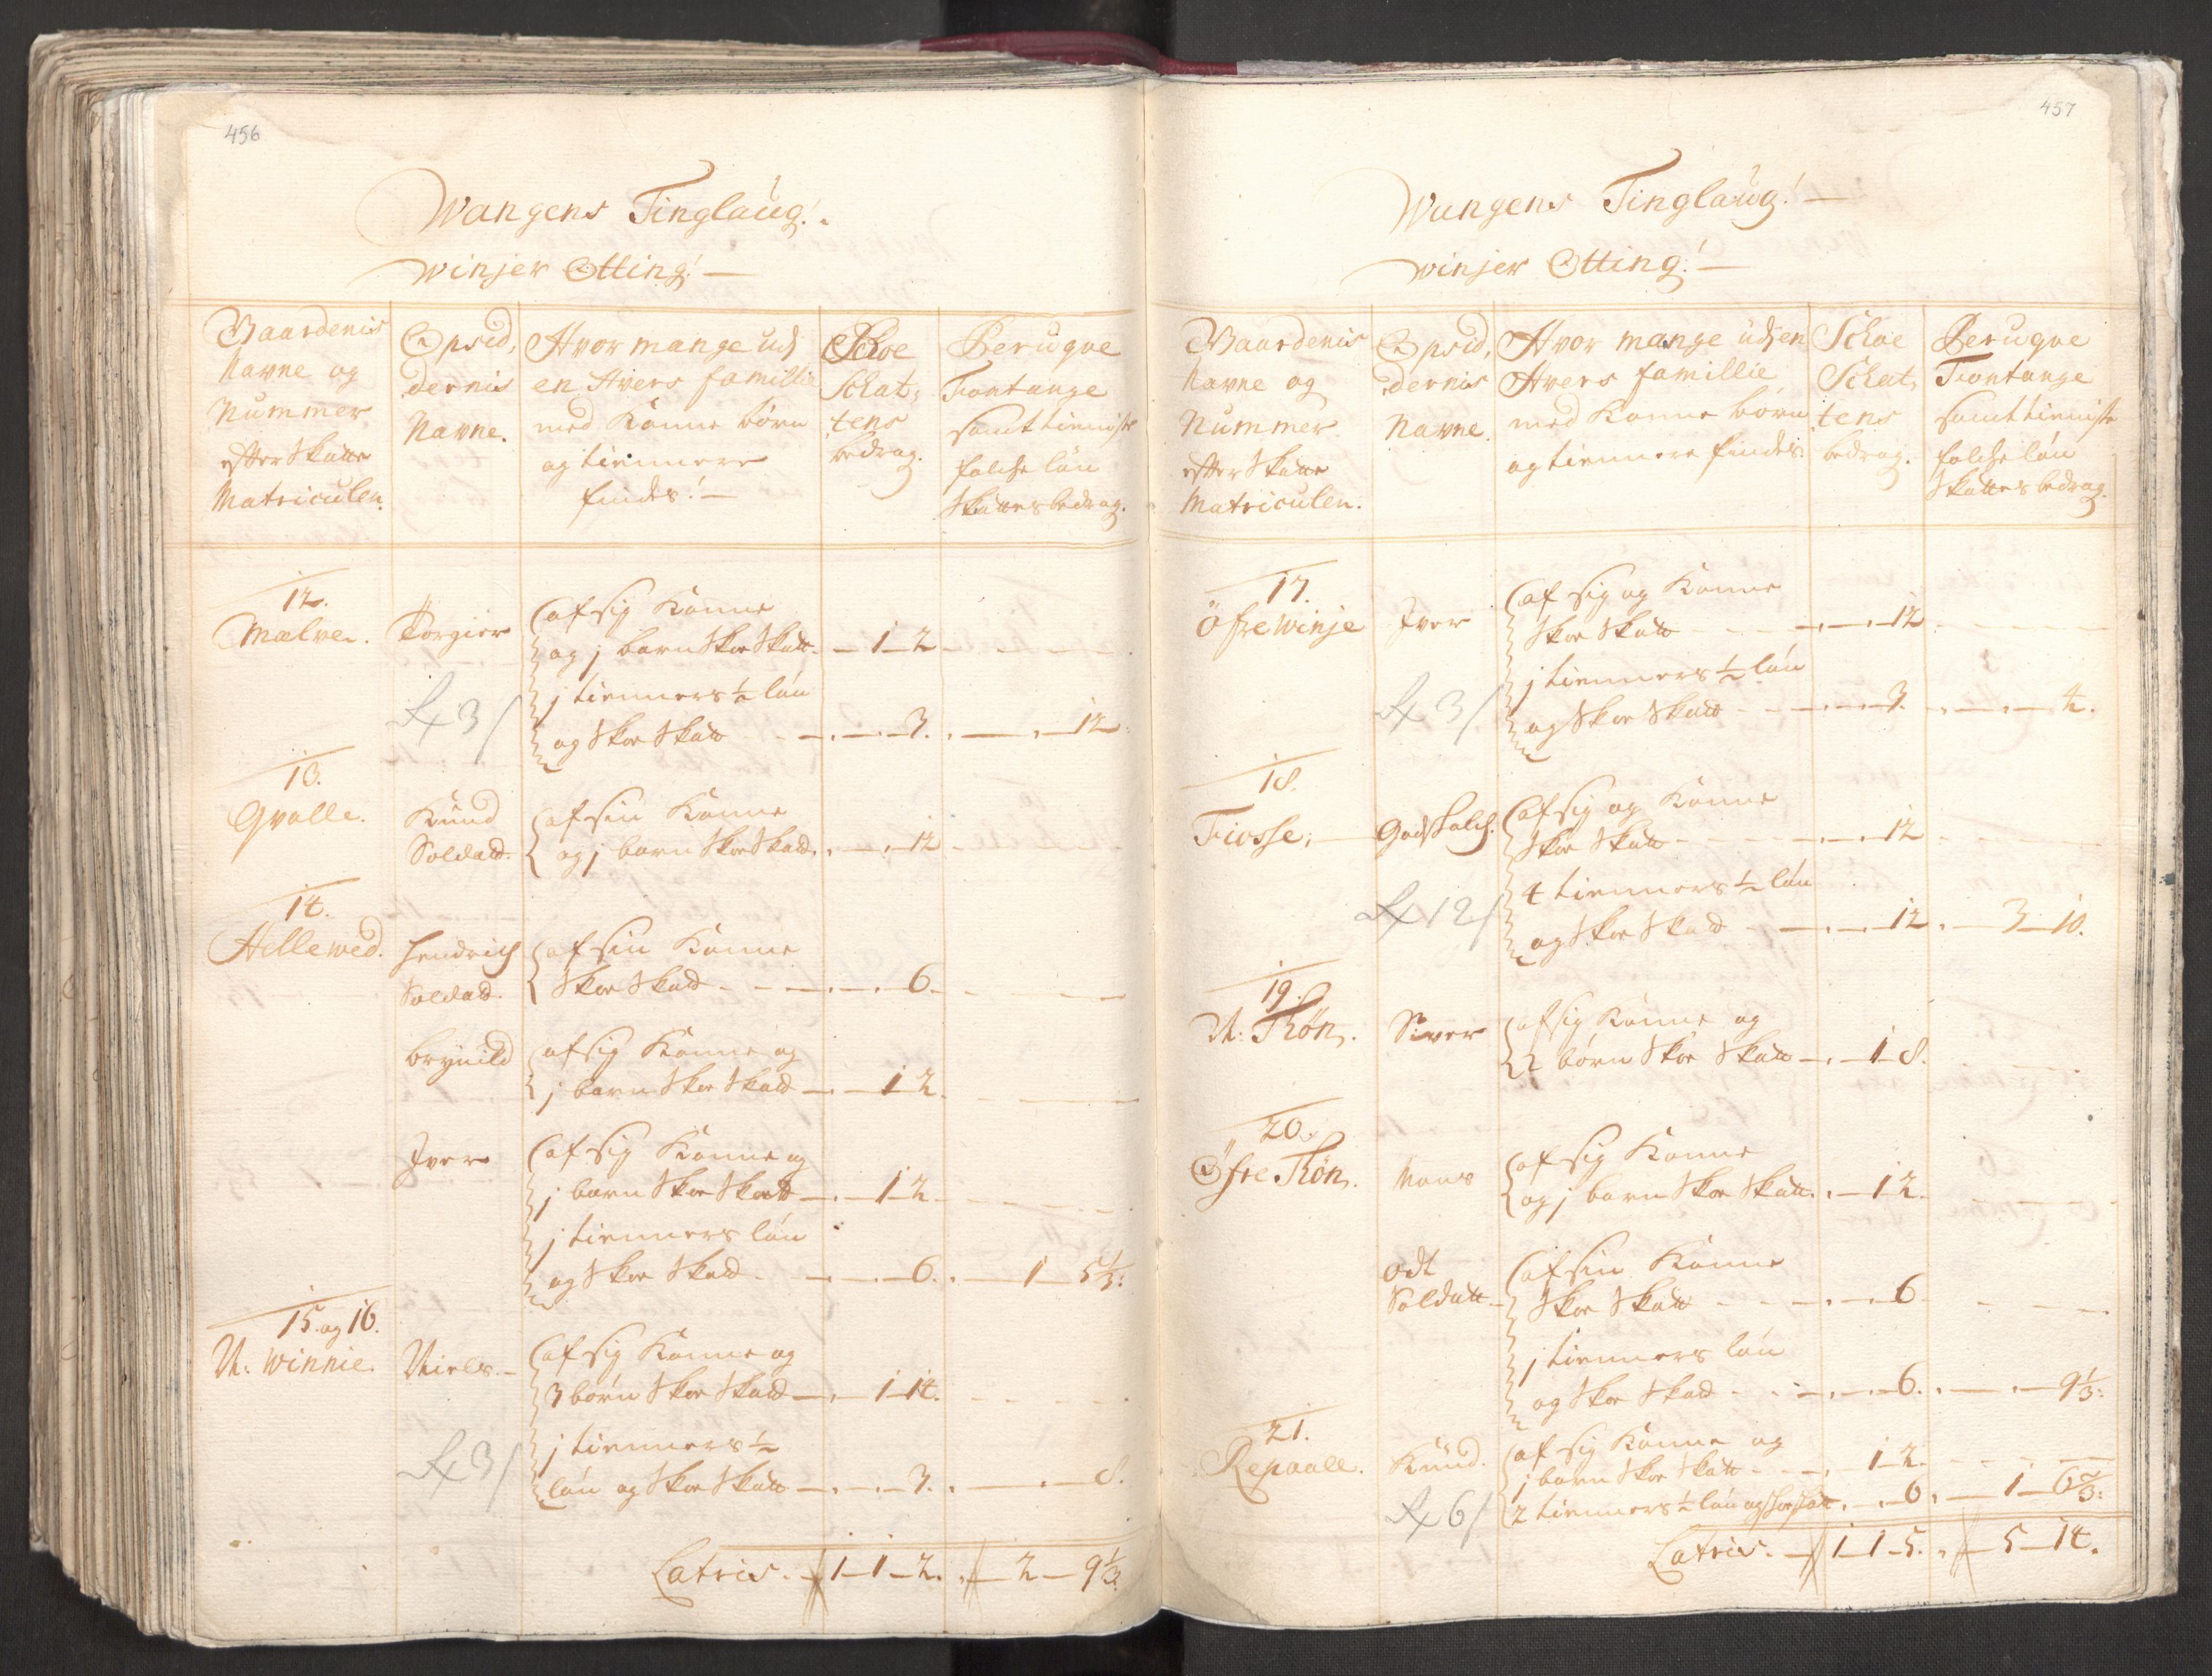 456
Wangens Tinglaug!
winjer Otting!
Gaardenis Navne og Nummer efter Skatte Matriculen.
Opsiddernis Navne.
Hvor mange udj en Hvers famillie med Konne börn og tiennere findes!
Schoe Schattens bedrag.
Peruqve Fontange samt tieniste folchs lön Skattes bedrag.
12.
Mælve. Torgier
af sig Konne
og j barn Skoe Skatt 1 - 2
L 3/
j tienners ½ lön
og Skoe Skatt 3. 12
13.
Gvalle. Knud Soldatt.
af sin Konne
og j barn Skoe Skatt. 12
14.
Hellewed. Hendrich Soldatt.
af sin Konne
Skoe Skatt 6.
Brynild
af sig Konne og
j barn Skoe Skatt 1 2.
Iver
af sig Konne og
j barn Skoe Skatt 1 2
j tienners lön
og Skoe Skatt 6. 1 5⅓:
15. og 16.
N: winnie. Niels.
af sig Konne og
3 börn Skoe Skatt 1 - 14.
L 3/
j tienners ½
lön og Skoe Skatt 3. 8.
Latris. 1 - 1 - 2. 2 - 9⅓
457
Wangens Tinglaug!
winjer Otting!
Gaardenis Navne og Nummer efter Skatte Matriculen.
Opsiddernis Navne.
Hvor mange udj en Hvers famillie med Konne börn og tiennere findes.
Schoe Schattens bedrag.
Peruqve Fontange samt tieniste folchs lön Skattes bedrag.
17.
Öfre winje Iver
af sig og Konne
Skoe Skatt 12
L 3/
j tienners ½ lön
og Skoe Skatt 3. 4.
18.
Fiosse. Godskalch.
af sig og Konne
Skoe Skatt 12
L 12/
4 tienners ½ lön
og Skoe Skatt 12. 3 - 10.
19.
N: Rön. Siver
af sig Konne og
2 börn Skoe Skatt 1 - 8.
20.
Öfre Rön. Mons
af sig Konne
og j barn Skoe Skatt. 1 2.
Odt Soldatt
af sin Konne
Skoe Skatt 6
j tienners lön
og Skoe Skatt 6. 9⅓:
21.
Repaale. Knud.
af sig Konne og
j barn Skoe Skatt 1 2.
L 6/
2 tienners ½ lön og Skoe Skatt. 6. 1 - 6⅔:
Latris. 1 - 1 - 5. 5 - 14.